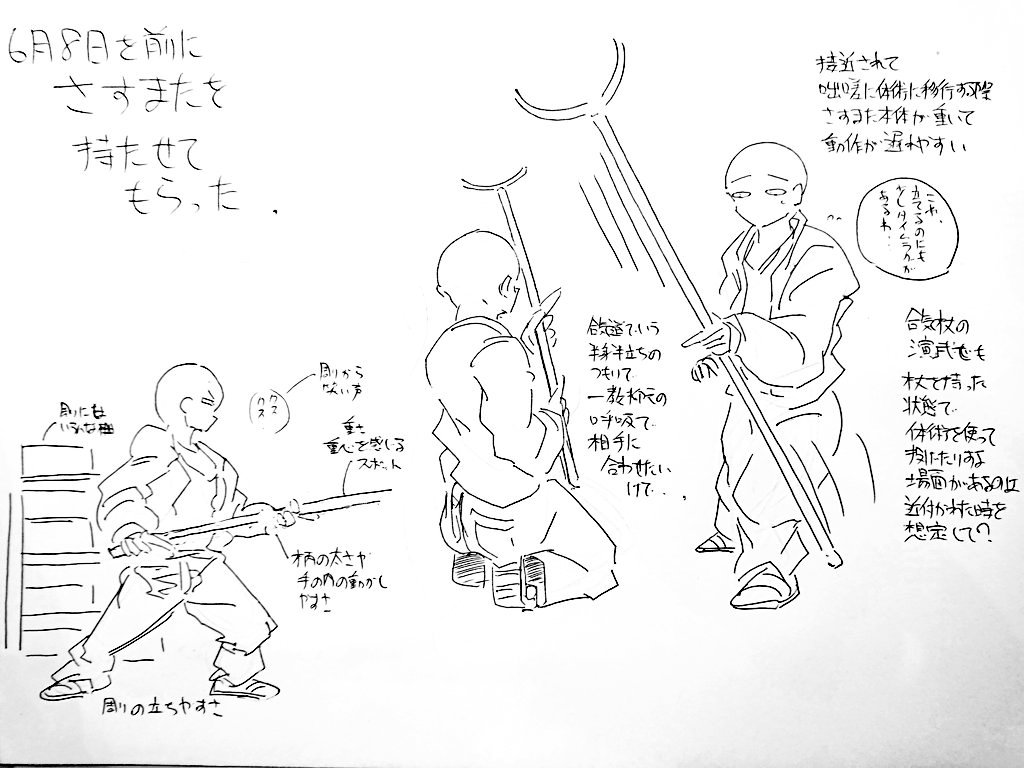 6月8日を前に
さすまたを
持たせて
もらった.
接近されて
咄嗟に体術に移行する際
さすまた本体が重いて
動作が遅れやすい
こや、
カてるのにも
タイムラグが
あるわ…
合気道でいう
半身半立ちの
つもいて
一教杖の
呼吸で
相手に
合わせたい
けど...
合気杖の
演武でも
杖を持った
状態で
体術を使って
投げたりする
場面があるのは
近付かれた時を
想定して?
周りから
笑い声
クス
クス
重さ
重心を感じる
スポット
柄の太さや
手の内の動かし
やすさ
周りの立ちやすさ